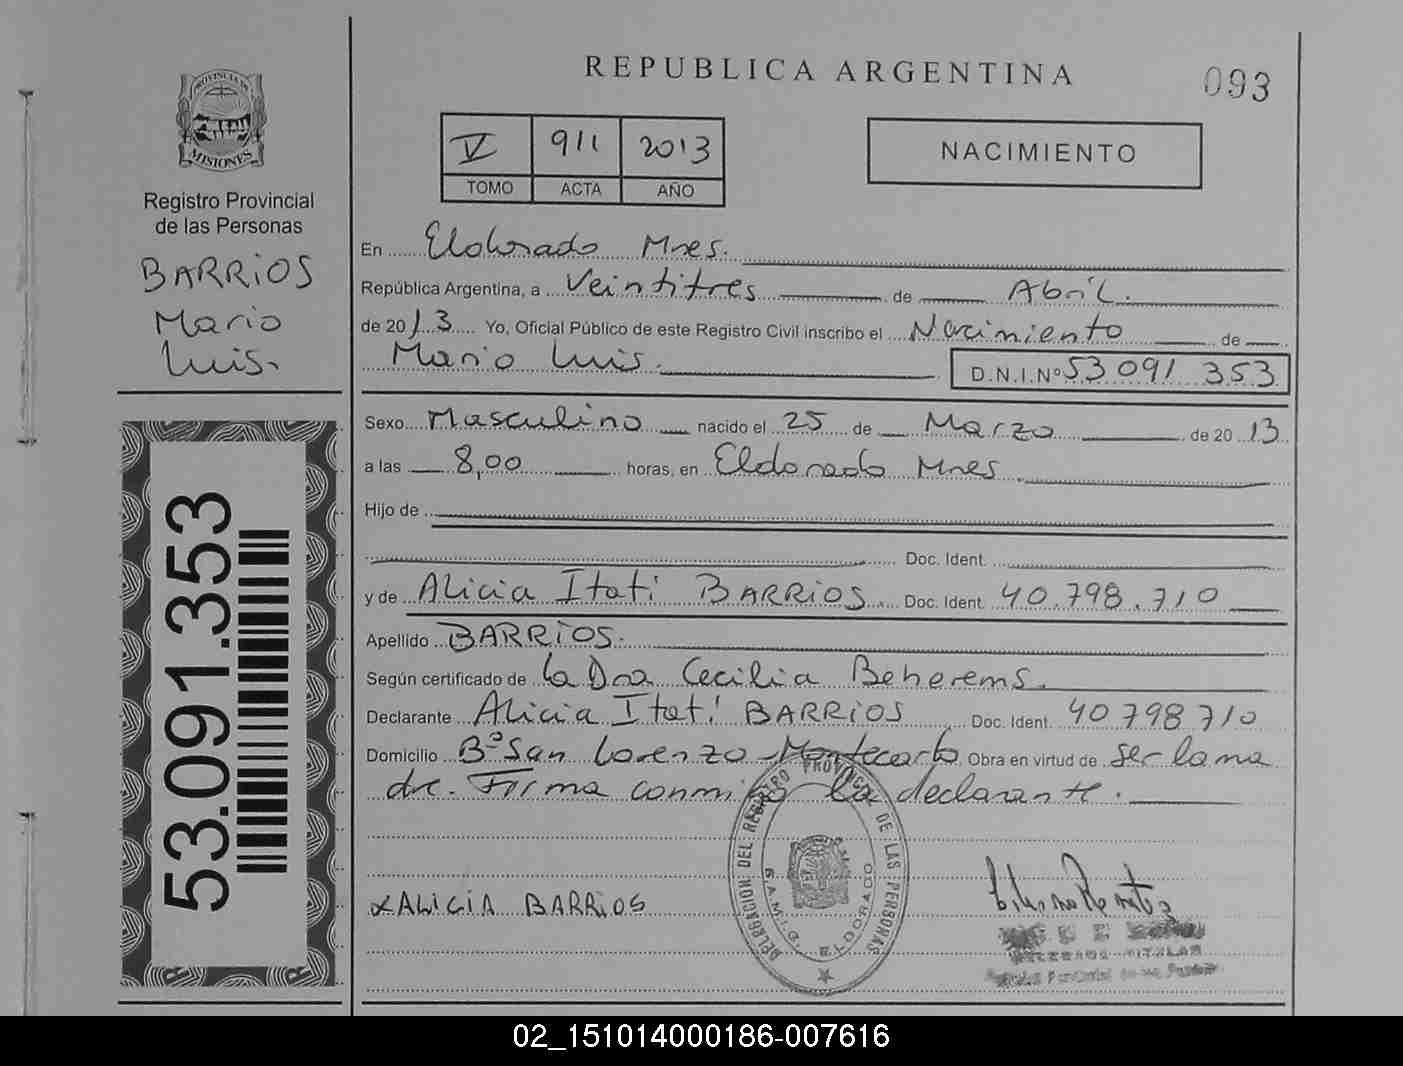 REPUBLICA ARGENTINA
093
PROVINCIA DE
MISIONES
Registro Provincial
de las Personas
BARRIOS
Mario
Luis.
V 911 2013
TOMO ACTA AÑO
NACIMIENTO
En Eldorado Mnes.
República Argentina, a Veintitres de Abril.
de 2013 Yo, Oficial Público de este Registro Civil inscribo el Nacimiento de
Mario Luis. D.N.I.Nº 53 091 353
Sexo Masculino nacido el 25 de Marzo de 20 13
a las 8,00 horas, en Eldorado Mnes.
Hijo de
Doc. Ident.
y de Alicia Itati BARRIOS Doc. Ident. 40.798.710
Apellido BARRIOS.
Según certificado de la Dra Cecilia Beherems.
Declarante Alicia Itati BARRIOS Doc. Ident. 40 798 710
Domicilio Bº San Lorenzo Montecarlo Obra en virtud de ser la ma
dre. Firma conmigo la declarante.
53.091.353
x ALICIA BARRIOS
DELEGACION DEL REGISTRO PROVINCIAL DE LAS PERSONAS
ELDORADO
TITULAR
02_151014000186-007616